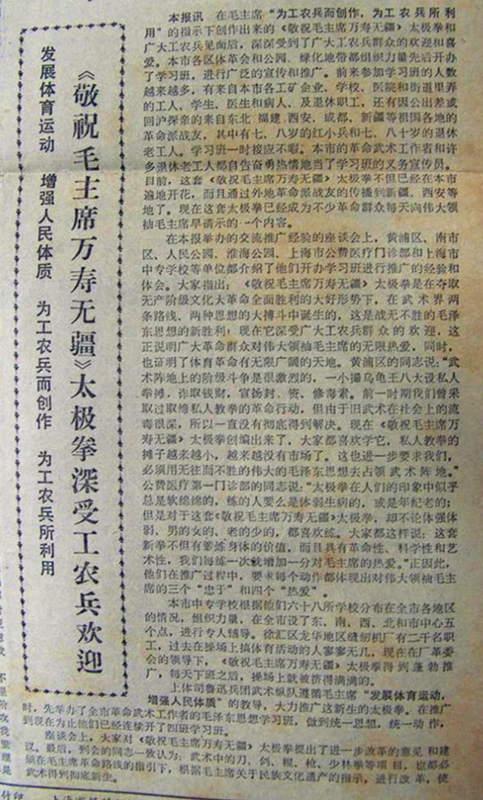 《敬祝毛主席万寿无疆》太极拳深受工农兵欢迎
发展体育运动 增强人民体质 为工农兵而创作 为工农兵所利用
本报讯 在毛主席“为工农兵而创作,为工农兵所利
用”的指示下创作出来的《敬祝毛主席万寿无疆》太极拳和
广大工农兵见面后,深深受到了广大工农兵群众的欢迎和喜
爱。本市各区体革会和公园、绿化地带都组织力量先后开办
了学习班,进行广泛的宣传和推广。前来参加学习班的人数
越来越多,有来自本市各工矿企业、学校、医院和街道里弄
的工人、学生、医生和病人、及退休职工,还有因公出差或
回沪探亲的来自东北、福建、西安、成都、新疆等祖国各地的
革命派战友,其中有七、八岁的红小兵和七、八十岁的退休
老工人。学习班一时接应不暇。本市的革命武术工作者和许
多退休老工人都自告奋勇热情地当了学习班的义务宣传员。
目前,这套《敬祝毛主席万寿无疆》太极拳不但已经在本市
遍地开花,而且通过外地革命派战友的传播到新疆、西安等
地了。现在这套太极拳已经成为不少革命群众每天向伟大领
袖毛主席早请示的一个内容。
在本报举办的交流推广经验的座谈会上,黄浦区、南市
区、人民公园、淮海公园、上海市公费医疗门诊部和上海市
中专学校等单位都介绍了他们开办学习班进行推广的经验和
体会。大家指出:《敬祝毛主席万寿无疆》太极拳是在夺取
无产阶级文化大革命全面胜利的大好形势下,在武术界两
条路线、两种思想的大搏斗中诞生的,这是战无不胜的毛泽
东思想的新胜利;现在它深受广大工农兵群众的欢迎,这
正说明广大革命群众对伟大领袖毛主席的无限热爱,同时,
也证明了体育革命有无限广阔的天地。黄浦区的同志说:“武
术阵地上的阶级斗争是很激烈的,一小撮乌龟王八大设私人
拳摊,诈取钱财,宣扬封、资、修毒素。前一时期我们曾采
取过取缔私人教拳的革命行动,但由于旧武术在社会上的流
毒很深,所以一直没有彻底得到解决。现在《敬祝毛主席万
寿无疆》太极拳创编出来了,大家都喜欢学它,私人教拳的
摊子越来越小,越来越没有市场了。这也进一步要求我们,
必须用无往而不胜的伟大的毛泽东思想去占领武术阵地。”
公费医疗第一门诊部的同志说:“太极拳在人们的印象中似乎
总是软绵绵的,练的人要么是体弱生病的,或是年纪老的;
但是对于这套《敬祝毛主席万寿无疆》太极拳,却不论体强体
弱、男的女的、老的少的,都喜欢练。大家都这样说:这套
新拳不但有锻炼身体的价值,而且具有革命性、科学性和艺
术性,我们每练一次就增加一分对毛主席的热爱。”正因此,
他们在推广过程中,要求每个动作都体现出对伟大领袖毛主
席的三个“忠于”和四个“热爱”。
本市中专学校根据他们六十八所学校分布在全市各地区
的情况,组织力量,在全市设了东、南、西、北和市中心五
个点,进行专人辅导。徐汇区龙华地区缝纫机厂有二千名职
工,过去在操场上搞体育活动的人寥寥无几,现在在厂革委
会的领导下,《敬祝毛主席万寿无疆》太极拳得到蓬勃推
广,每天下班之后,操场上就被挤得满满的。
上体司鲁迅兵团武术纵队遵循毛主席“发展体育运动,
增强人民体质”的教导,大力推广这新生的太极拳。在推广
时,先举办了全市革命武术工作者的毛泽东思想学习班,做到统一思想,统一动作,
到现在为止他们已经连续开了四期学习班。
座谈会上,大家对《敬祝毛主席万寿无疆》太极拳提出了进一步改革的意见和建
议。最后,到会的同志一致认为:武术中的刀、剑、棍、枪、少林拳等项目,也都必
在毛主席革命路线的指引下,根据毛主席关于民族文化遗产的指示,进行改革,使
武术得到彻底新生。